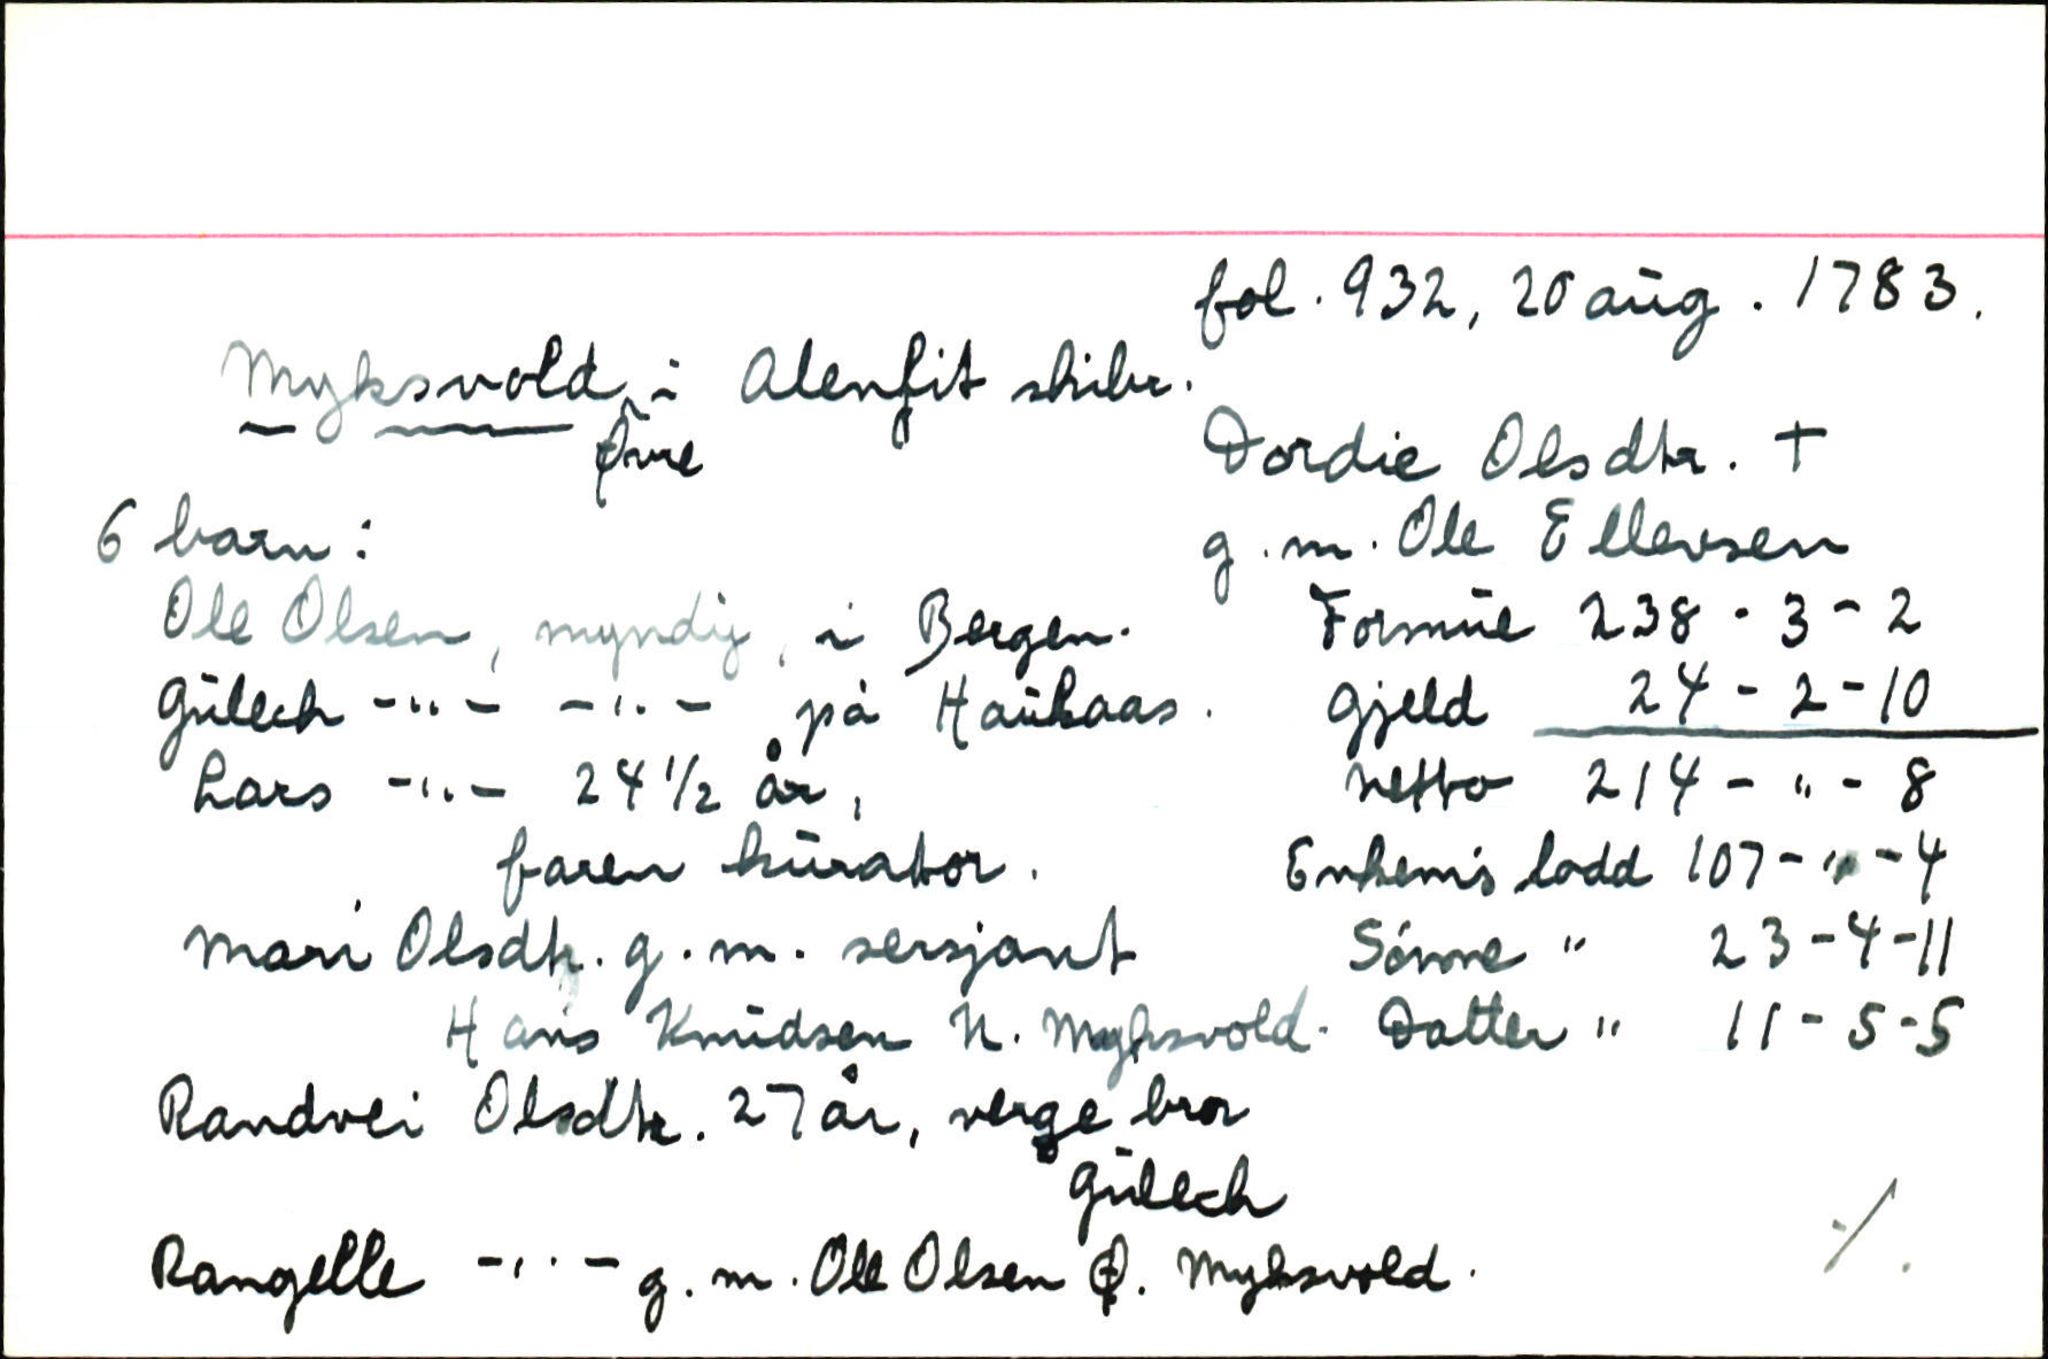 fol. 932, 20 aug. 1783.
Myksvold, Øvre i Alenfit skibr.
Dordie Olsdtr. +
6 barn:
g.m. Ole Ellevsen
Ole Olsen, myndig, i Bergen.
Formue 238 - 3 - 2
Gulech -"- -"- på Haukaas.
Gjeld 24 - 2 - 10
Lars -"- 24 1/2 år,
Netto 214 - " - 8
faren kurator.
Enkem's lodd 107 - " - 4
Mari Olsdtr. g.m. sersjant
Sønne " 23 - 4 - 11
Hans Knudsen N. Myksvold.
Datter " 11 - 5 - 5
Randvei Olsdtr. 27 år, verge bror
Gulech
Rangelle -"- g.m. Ole Olsen Ø. Myksvold.
./.